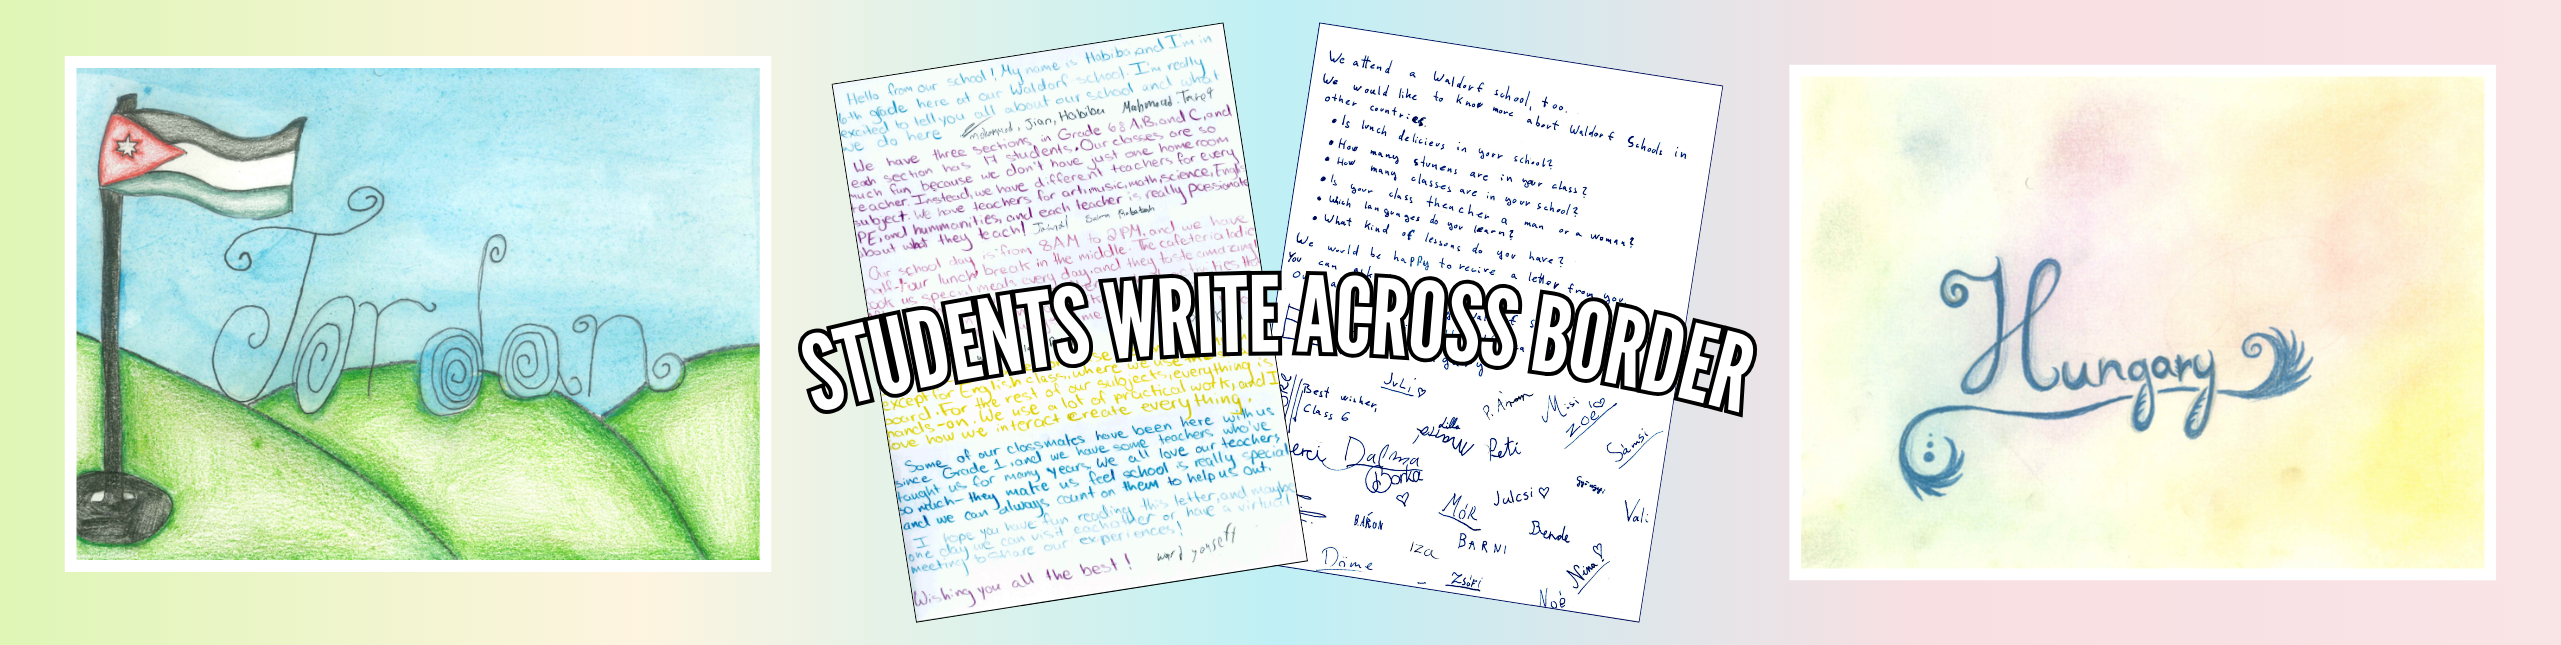 Jordan
Hello from our school! My name is Habiba and I'm in
6th grade here at our Waldorf school. I'm really
excited to tell you all about our school and what
we do here
Mohamed, Jian, Habiba Mahmoud
We have three sections in Grade 6: A, B, and C, and
each section has 17 students. Our classes are so
much fun because we don't have just one homeroom
teacher. Instead, we have different teachers for every
subject. We have teachers for art, music, math, science, Engli
PE, and hummanities, and each teacher is really passionate
about what they teach!
Our school day is from 8 AM to 2 PM, and we have
half-hour lunch break in the middle. The cafeteria ladies
cook us special meals every day, and they taste amazing!
except for English class, where we use the
board. For the rest of our subjects, everything is
hands-on. We use a lot of practical work, and I
love how we interact create everything.
Some of our classmates have been here with us
since Grade 1, and we have some teachers who've
taught us for many years. We all love our teachers
so much- they make us feel school is really special
and we can always count on them to help us out.
I hope you have fun reading this letter, and maybe
one day we can visit eachother or have a virtual
meeting to share our experiences!
Wishing you all the best!
We attend a Waldorf school, too.
We would like to know more about Waldorf Schools in
other countries.
• Is lunch delicieus in your school?
• How many stunens are in your class?
• How many classes are in your school?
• Is your class theacher a man or a woman?
• Which languages do you learn?
• What kind of lessons do you have?
We would be happy to recive a letter from you.
You can
STUDENTS WRITE ACROSS BORDER
Best wishes,
Class 6
Juli
P. Áron
Misi
Zoé
Lilla
Reti
Samsi
Dalma
Borka
Mór
Julcsi
Vali
BÁRON
Iza
BARNI
Bende
Nina
Döme
Zsófi
Noé
Hungary